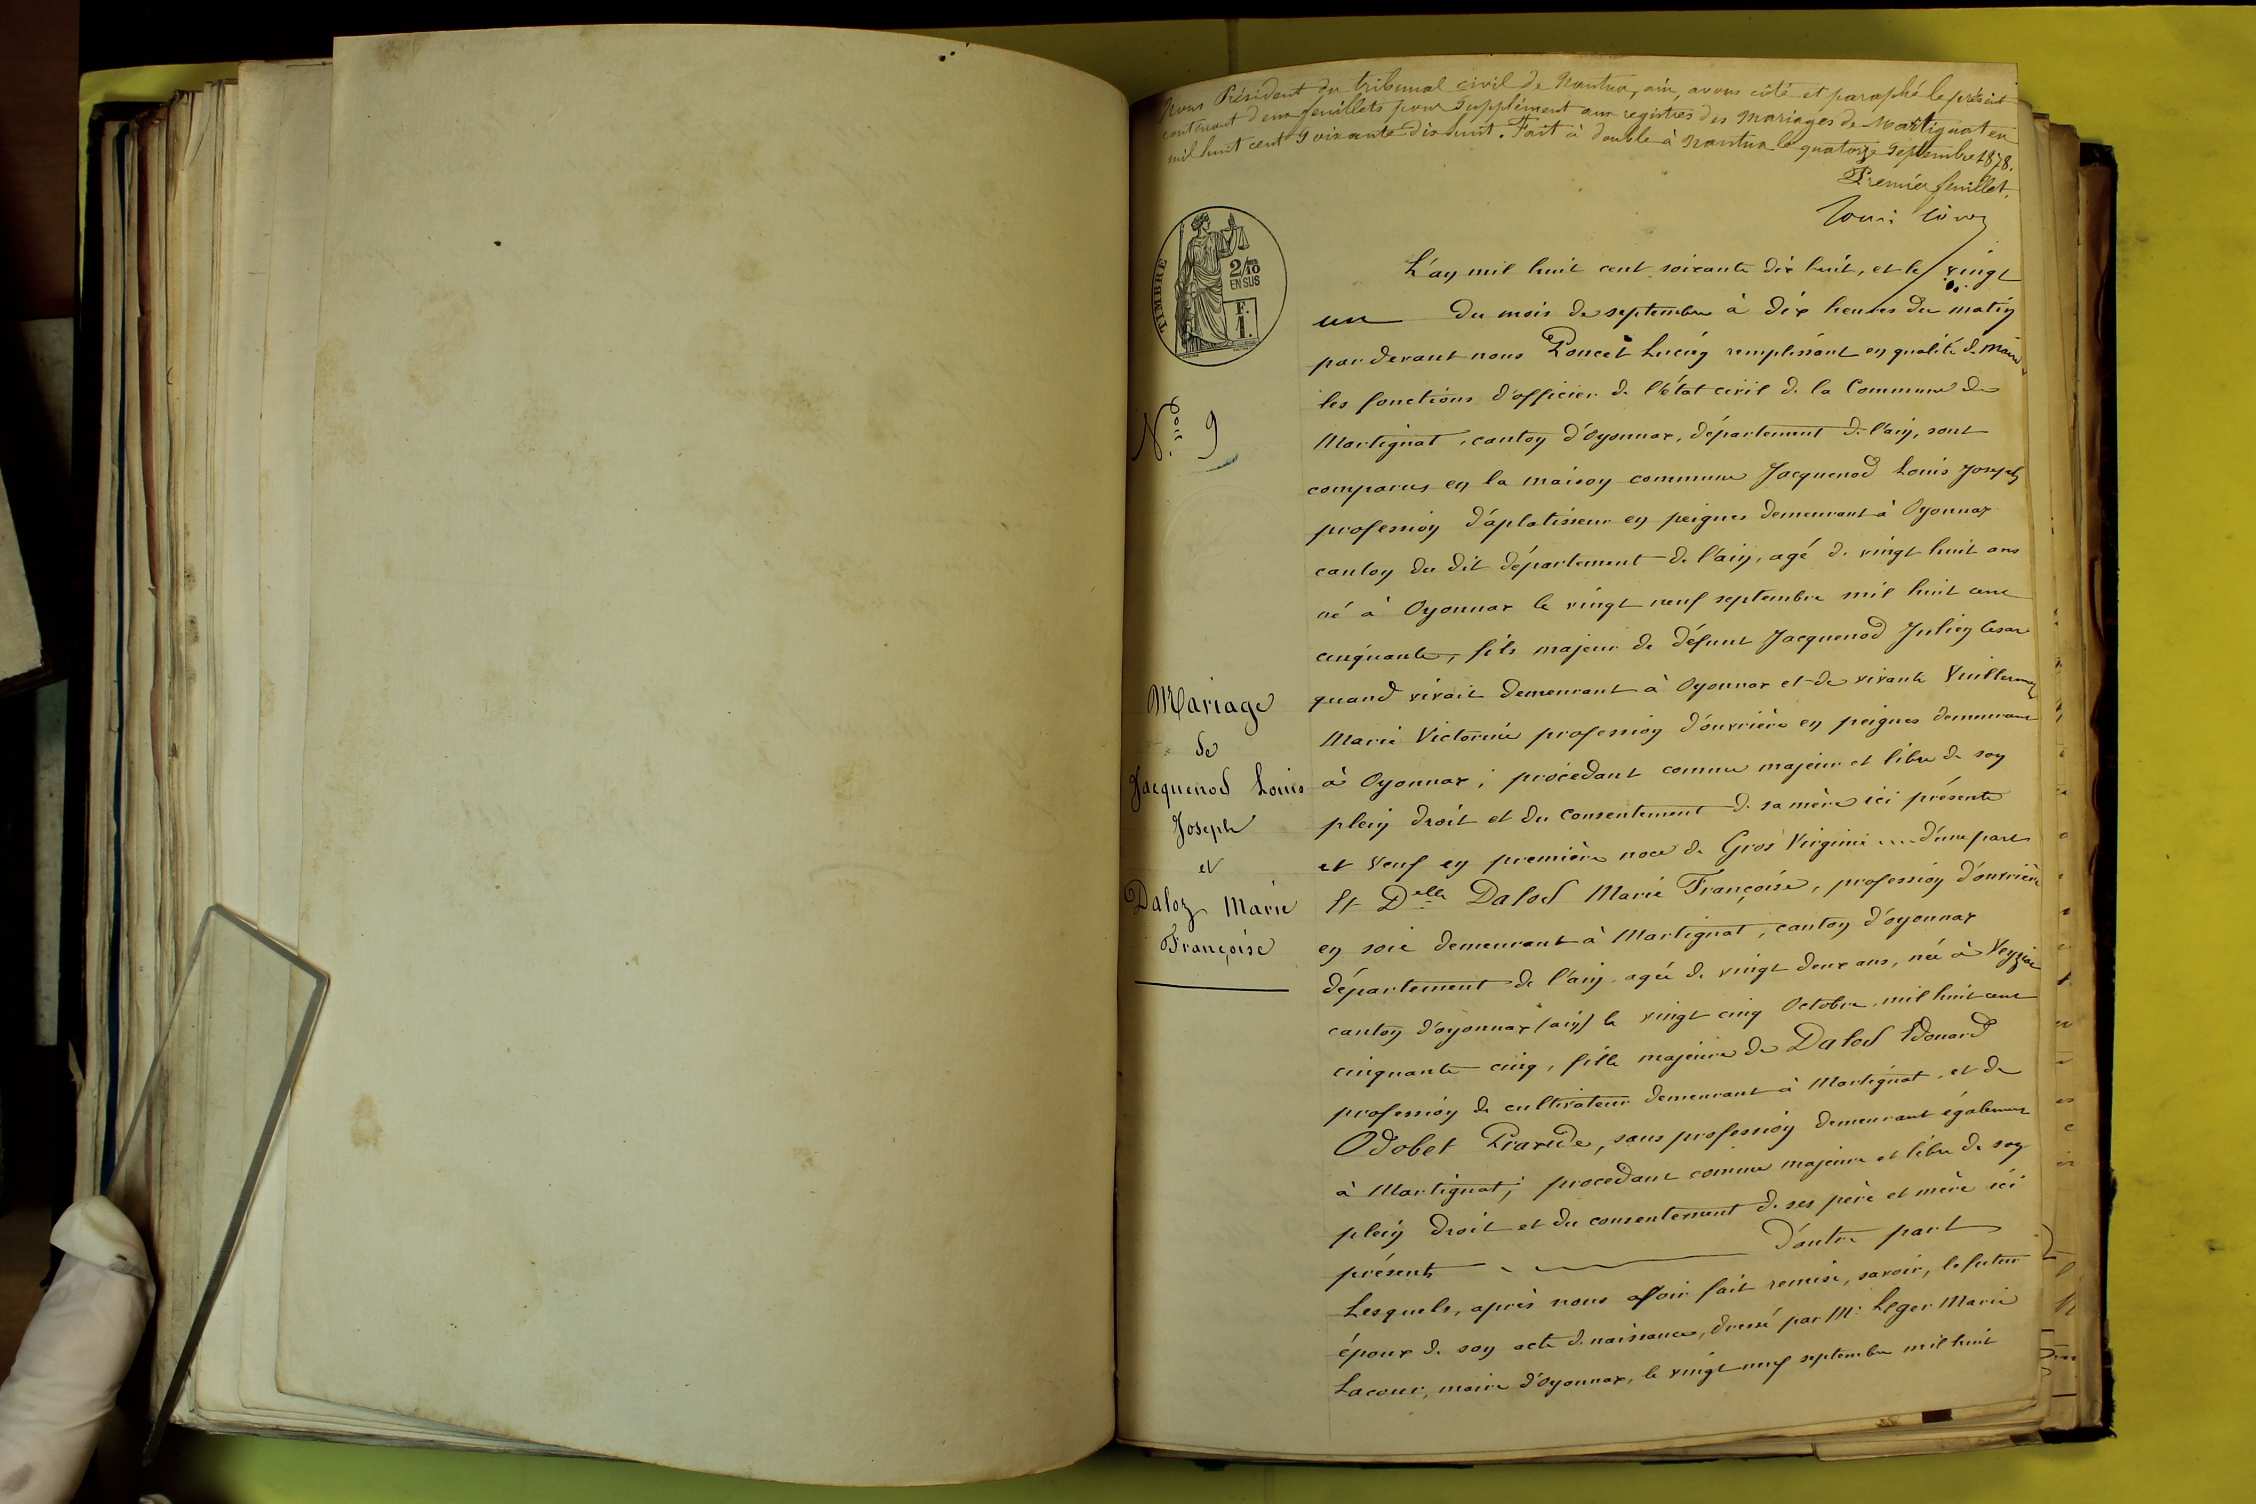 Nous Président du tribunal civil de Nantua, ain, avons côté et paraphé le présent
contenant deux feuillets pour supplément aux registres des mariages de Martignat en
mil huit cent soixante dix huit. Fait à double à Nantua le quatorze septembre 1878.
Premier feuillet.
TIMBRE
2/10
EN SUS
F.
1.
N.° 9
Mariage
de
Jacquenod Louis
Joseph
et
Daloz Marie
Françoise
L'an mil huit cent soixante dix huit, et le vingt
un du mois de septembre à dix heures du matin
par devant nous Poncet Lucien remplissant en qualité de Maire
les fonctions d'officier de l'état civil de la Commune de
Martignat, canton d'Oyonnax, département de l'ain, sont
comparus en la maison commune Jacquenod Louis Joseph
profession d'aplatisseur en peignes demeurant à Oyonnax
canton du dit département de l'ain, agé de vingt huit ans
né à Oyonnax le vingt neuf septembre mil huit cent
cinquante, fils majeur de défunt Jacquenod Julien Cesar
quand vivait demeurant à Oyonnax et de vivante Vuillermoz
Marie Victorine profession d'ouvrière en peignes demeurant
à Oyonnax; procédant comme majeur et libre de son
plein droit et du consentement de sa mère ici présente
et veuf en première noce de Gros Virginie .... d'une part
Et Delle Dalod Marie Françoise, profession d'ouvrière
en soie demeurant à Martignat, canton d'oyonnax
département de l'ain agée de vingt deux ans, née à Veyziat
canton d'oyonnax (ain) le vingt cinq Octobre mil huit cent
cinquante cinq, fille majeure de Dalod Edouard
profession de cultivateur demeurant à Martignat, et de
Odobet Praxède, sans profession demeurant également
à Martignat; procedant comme majeure et libre de son
plein droit et du consentement de ses père et mère ici
présents d'autre part
Lesquels, après nous avoir fait remise, savoir, le futur
époux de son acte de naissance, dressé par Mr Leger Marie
Lacour, maire d'Oyonnax, le vingt neuf septembre mil huit